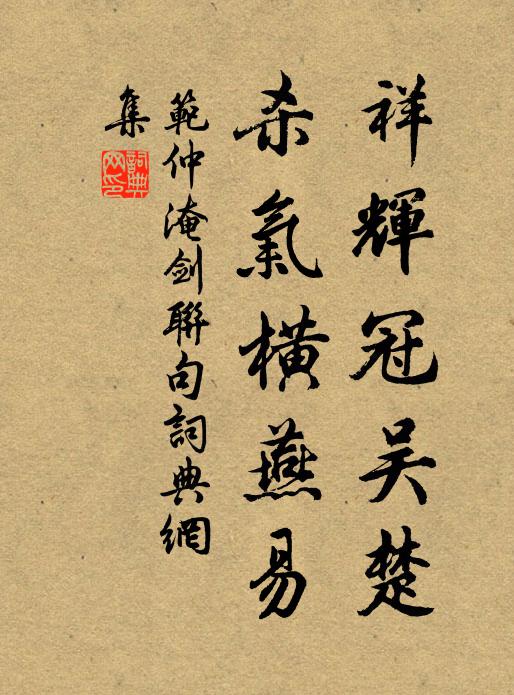 祥輝冠吴楚
杀氣橫燕易
範仲淹劍聯句詞典網
集
詞典
网印